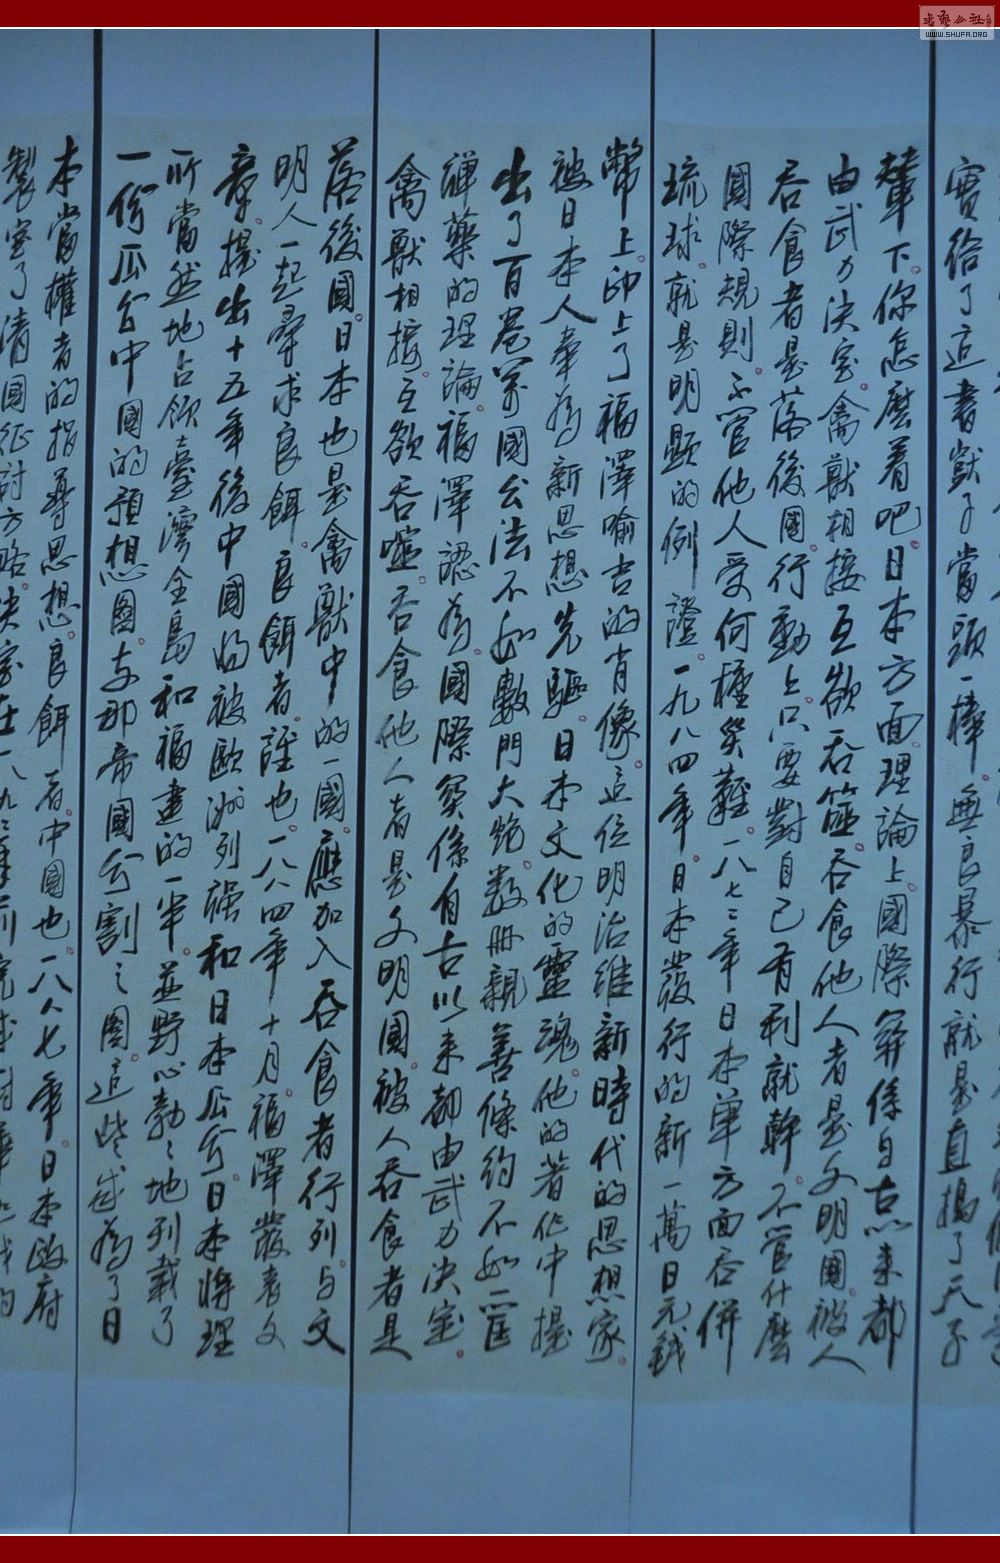 實給了這書獃子當頭一棒。無良暴行就是直搗了天子
輦下。你怎麼看吧。日本方面。理論上國際關係自古以来都
由武力决定。禽獸相接互欲吞噬。吞食他人者是文明國。被人
吞食者是落後國。行動上。只要對自己有利就幹。不管什麼
國際規則。不管他人受何種災難。一八七二年日本單方面吞併
琉球。就是明顯的例證。一九八四年日本發行的新一萬日元錢
幣上。印上了福澤喻吉的肖像。這位明治維新時代的思想家。
被日本人奉為新思想先驅。日本文化的靈魂。他的著作中提
出了百卷萬國公法不如數門大炮。数册親善條約不如一筐
弹藥的理論。福澤認為國際関係自古以来都由武力决定。
禽獸相接。互欲吞噬。吞食他人者是文明國。被人吞食者是
落後國。日本也是禽獸中的一國。應加入吞食者行列。与文
明人一起尋求良餌。良餌者。誰也。一八八四年十月。福澤發表文
章。提出十五年後中國將被歐洲列强和日本瓜分。日本将理
所當然地占领臺灣全島和福建的一半。並野心勃々地列載了
一份瓜分中國的預想圖。支那帝國分割之圖。這些成為了日
本當權者的指導思想。良餌者。中國也。一八八七年。日本政府
製定了清國征討方略。决定在一八九二年前完成對華
書藝公社
WWW.SHUFA.ORG